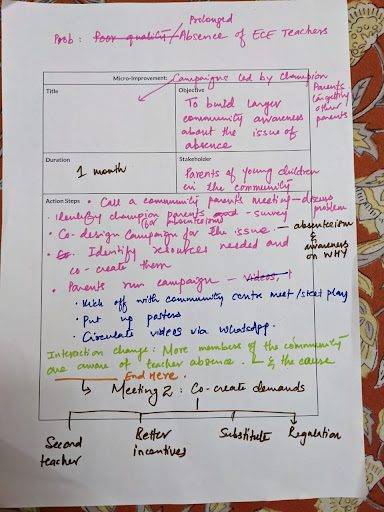 Prolonged
Prob: Poor quality / Absence of ECE Teachers
Micro-Improvement: Campaigns led by champion Parents
Title
Objective
targetting other parents
To build larger
community awareness
about the issue of
absence
Duration
1 month
Stakeholder
Parents of young children
in the community
Action Steps • Call a community parents meeting - discuss problem
• Identify champion parents - survey
(for absenteeism)
• Co-design campaign for the issue. - absenteeism
& awareness on WHY
• Identify resources needed and
co-create them
• Parents run campaign - videos,
• Kick off with community centre meet/street play
• Put up posters
• Circulate videos via whatsapp.
Interaction change: More members of the community
are aware of teacher absence. & the cause
End Here.
Meeting 2: Co-create demands
Second teacher
Better incentives
Substitute
Regulation